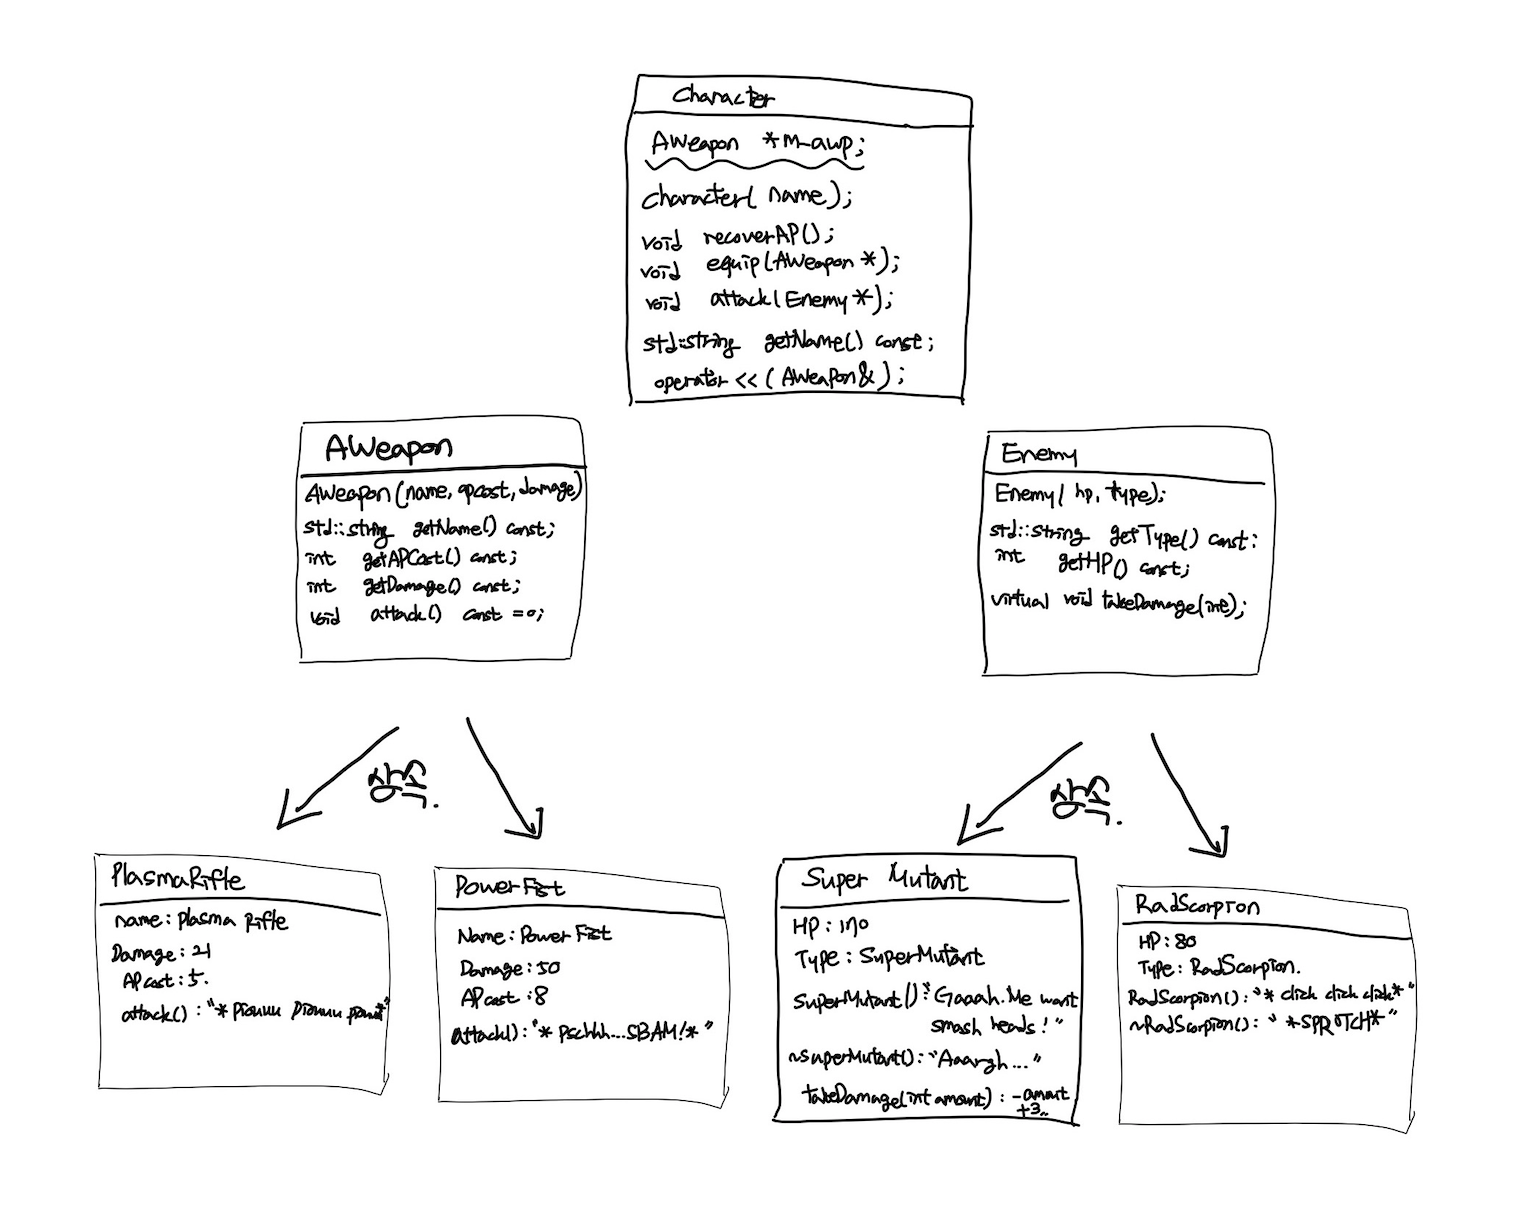 Character
AWeapon *m_awp;
Character( name);
void recoverAP();
void equip(AWeapon *);
void attack(Enemy *);
std::string getName() const;
operator << ( AWeapon& );
AWeapon
AWeapon(name, apcost, damage)
std::string getName() const;
int getAPCost() const;
int getDamage() const;
void attack() const =0;
Enemy
Enemy( hp, type);
std::string getType() const;
int getHP() const;
virtual void takeDamage(int);
상속.
상속.
PlasmaRifle
name: Plasma Rifle
Damage: 21
AP cost: 5.
attack() : "* piouuu piouuu piouuu*"
PowerFist
Name: Power Fist
Damage: 50
AP cost : 8
attack(): "* pschhh...SBAM!* "
Super Mutant
HP : 170
Type : SuperMutant
SuperMutant() : "Gaaah. Me want
smash heads ! "
~SuperMutant(): "Aaargh ... "
takeDamage(int amount) : -amount
+3..
RadScorpion
HP : 80
Type: RadScorpion.
RadScorpion() : "* click click click* "
~RadScorpion(): " *SPROTCH* "